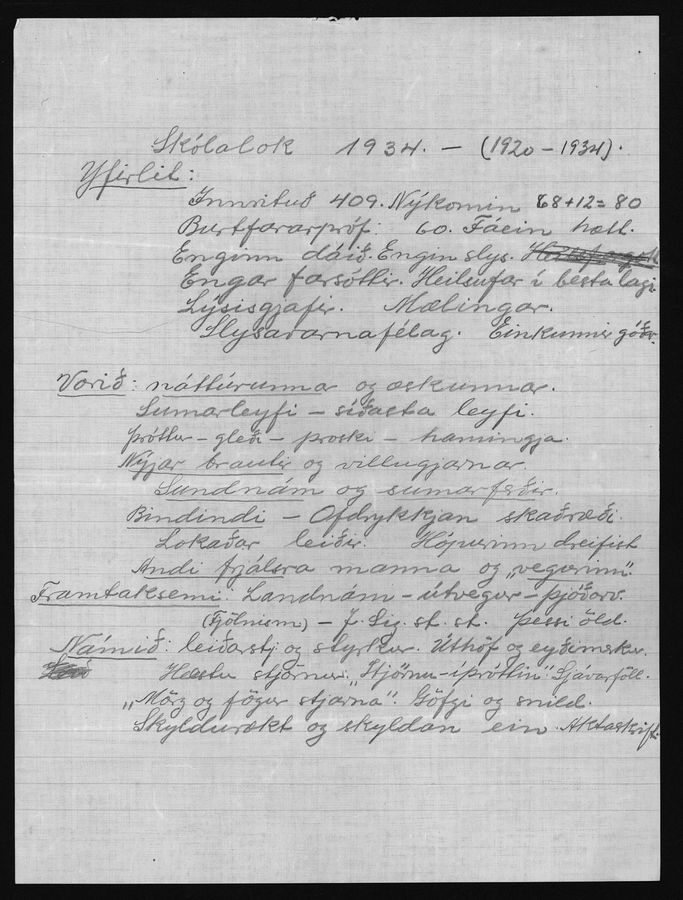 Skólalok 1934. – (1920–1934).
Yfirlit:
Innrituð 409. Nýkomin 68+12=80
Burtfararpróf: 60. Fáein hætt.
Enginn dáið. Engin slys.
Engar farsóttir. Heilsufar í besta lagi.
Lýsisgjafir. Mælingar.
Slysavarnafélag. Einkunnir góðar.
Vorið: náttúrunnar og æskunnar.
Sumarleyfi – síðasta leyfi.
Þróttur – gleði – þroski – hamingja.
Nýjar brautir og villugjarnar.
Sundnám og sumarferðir.
Bindindi – Ofdrykkjan skaðræði.
Lokaðar leiðir. Hópurinn dreifist
Andi frjálsra manna og „vegurinn".
Framtakssemi: Landnám – útvegur – þjóðorv.
(Fjölnism) – J. Sig. st. st. þessi öld.
Námið: leiðarstj. og styrkur. Úthöf og eyðimerkur.
Hæstu stjörnur. „Stjörnu-íþróttin". Sjávarföll.
„Mörg og fögur stjarna". Göfgi og snild.
Skyldurækt og skyldan ein.